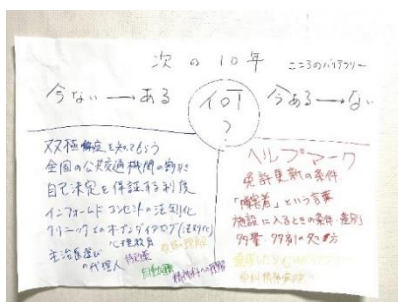 次の10年
こころのバリアフリー
今ない→ある
何?
今ある→ない
双極症を知ってもらう
全国の公共交通機関の割引
自己決定を保証する制度
インフォームドコンセントの法制化
クリニックでのオープンダイアログ(法制化)
主治医選び
の代理人
心理教育
ヘルプマーク
免許更新の条件
「障害者」という言葉
施設に入るときの条件・差別
多量・多剤の処方